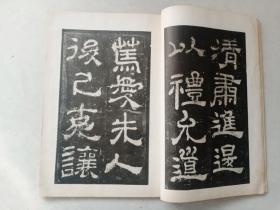 清肅進退
以禮允道
篤愛先人
後己克讓